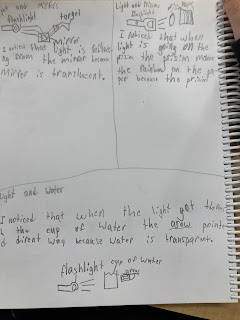 and Mirrors
flashlight
target
mirror
I noticed that light is
beam the mirror because
mirror is translucent.
Light and Prisms
flashlight
I noticed that when
light is going on the
prism the prism makes
the rainbow on the pa
per because the prism
Light and Water
I noticed that when the light got
the cup of water the arow pointe
dirent way because water is transparent.
flashlight cup of water
arow